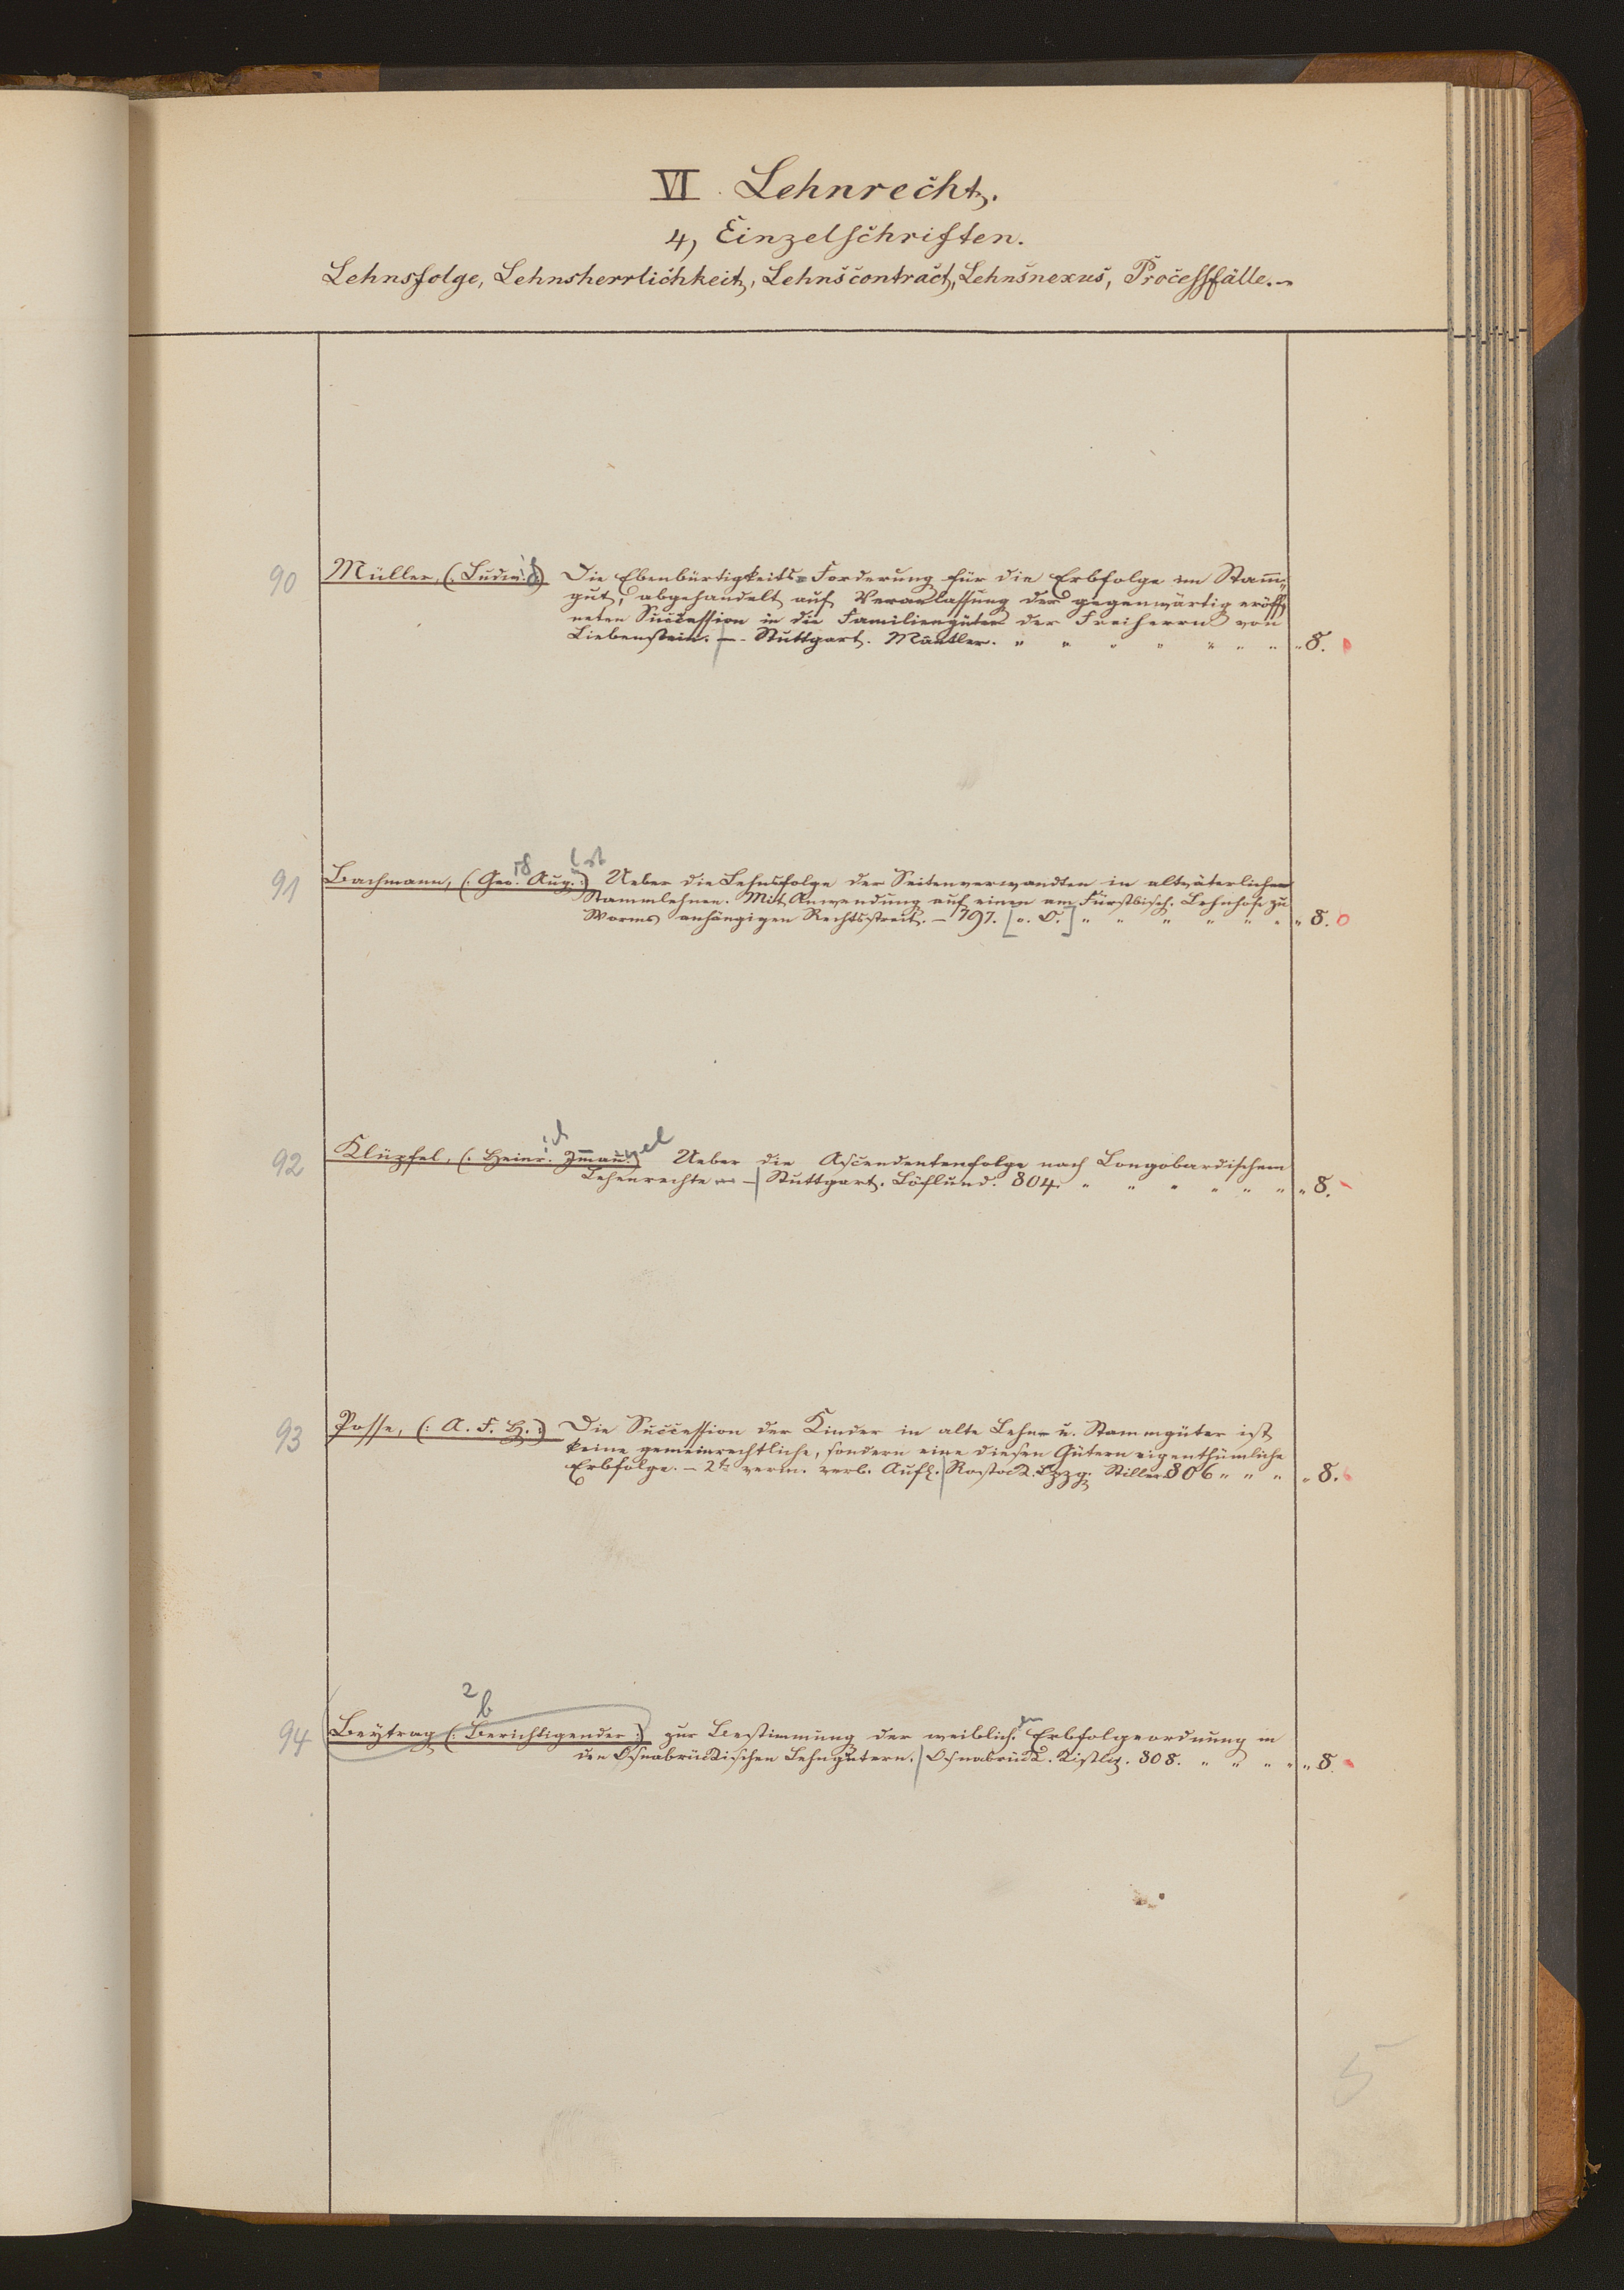 VI. Lehnrecht.
4, Einzelschriften.
Lehnsfolge, Lehnsherrlichkeit, Lehnscontract, Lehnsnexus, Processfälle.
90 Müller, (: Ludw. :) Die Ebenbürtigkeits-Forderung für die Erbfolge im Stam̅-
gut, abgehandelt auf Veranlassung der gegenwärtig eröff-
neten Succession in die Familiengüter der Freiherrn von
Liebenstein. — Stuttgart. Mäntler. " " " " " " " " 8.
91 Bachmann, (: Geo. Aug. :) Ueber die Lehnsfolge der Seitenverwandten in altväterlichen
Stammlehnen. Mit Anwendung auf einen am Fürstbisch. Lehnhofe zu
Worms anhängigen Rechtsstreit. — 797. [o. O.] " " " " " " " 8.
92 Klüpfel, (: Heinr. Im̅an. :) Ueber die Ascendentenfolge nach Longobardischem
Lehenrechte — Stuttgart. Löflund. 804. " " " " " " " 8.
93 Posse, (: A. F. H. :) Die Succession der Kinder in alte Lehne u. Stammgüter ist
keine gemeinrechtliche, sondern eine diesen Gütern eigenthümliche
Erbfolge. — 2te verm. verb. Aufl. Rostock. Lpzg. Stiller 806 " " " " 8.
94 Beytrag (: Berichtigender :) zur Bestimmung der weiblich. Erbfolgeordnung in
den Osnabrückischen Lehngütern. Osnabrück. 808. " " " " " 8.
5